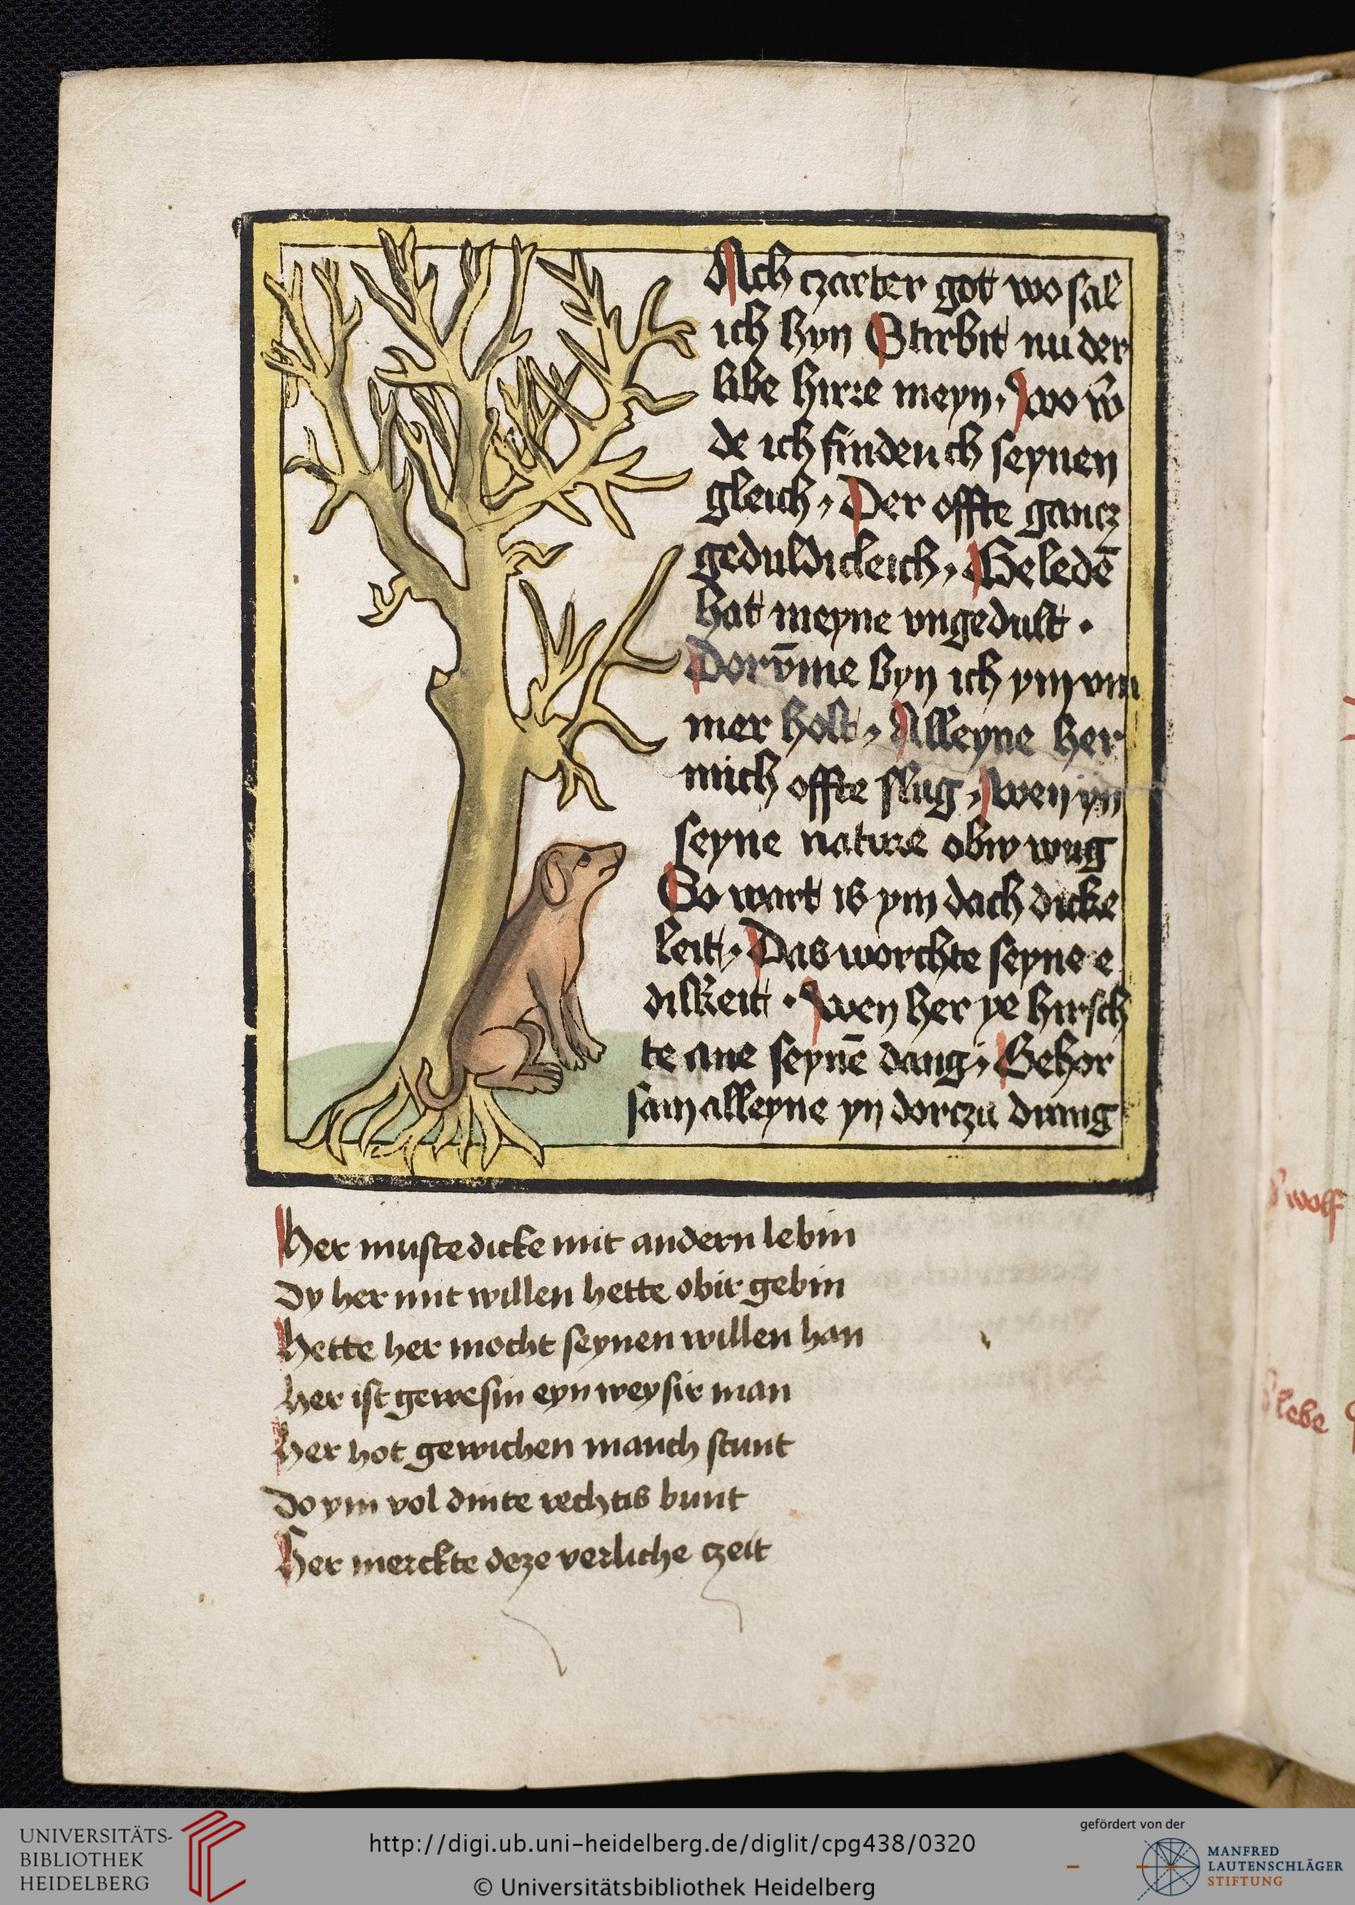 Ach czarter got wo sal
ich hyn Stirbit nu der
libe hirre meyn, Wo w̄
de ich finden ch seynen
gleich, Der offte gancz
geduldicleich, Geledē
hat meyne vngedult .
Dorv̄me byn ich ym vm
mer holt, Alleyne her
mich offte slug, Wen yn
seyne nature obir wug
So wart is ym dach dicke
leit, Das worchte seyne e
dilkeit . Wen her ye hirsch
te ane seynē dang, Gehor
sam alleyne yn dorczu drang
Her muste dicke mit andern lebin
Dy her mit willen hette obir gebin
Hette her mocht seynen willen han
her ist gewesin eyn weysir man
Her hot gewichen manch stunt
Do ym vol dinte rechtis bunt
Her merckte deze verliche czeit
wolf
lebe
UNIVERSITÄTS-
BIBLIOTHEK
HEIDELBERG
http://digi.ub.uni-heidelberg.de/diglit/cpg438/0320
© Universitätsbibliothek Heidelberg
gefördert von der
MANFRED
LAUTENSCHLÄGER
STIFTUNG